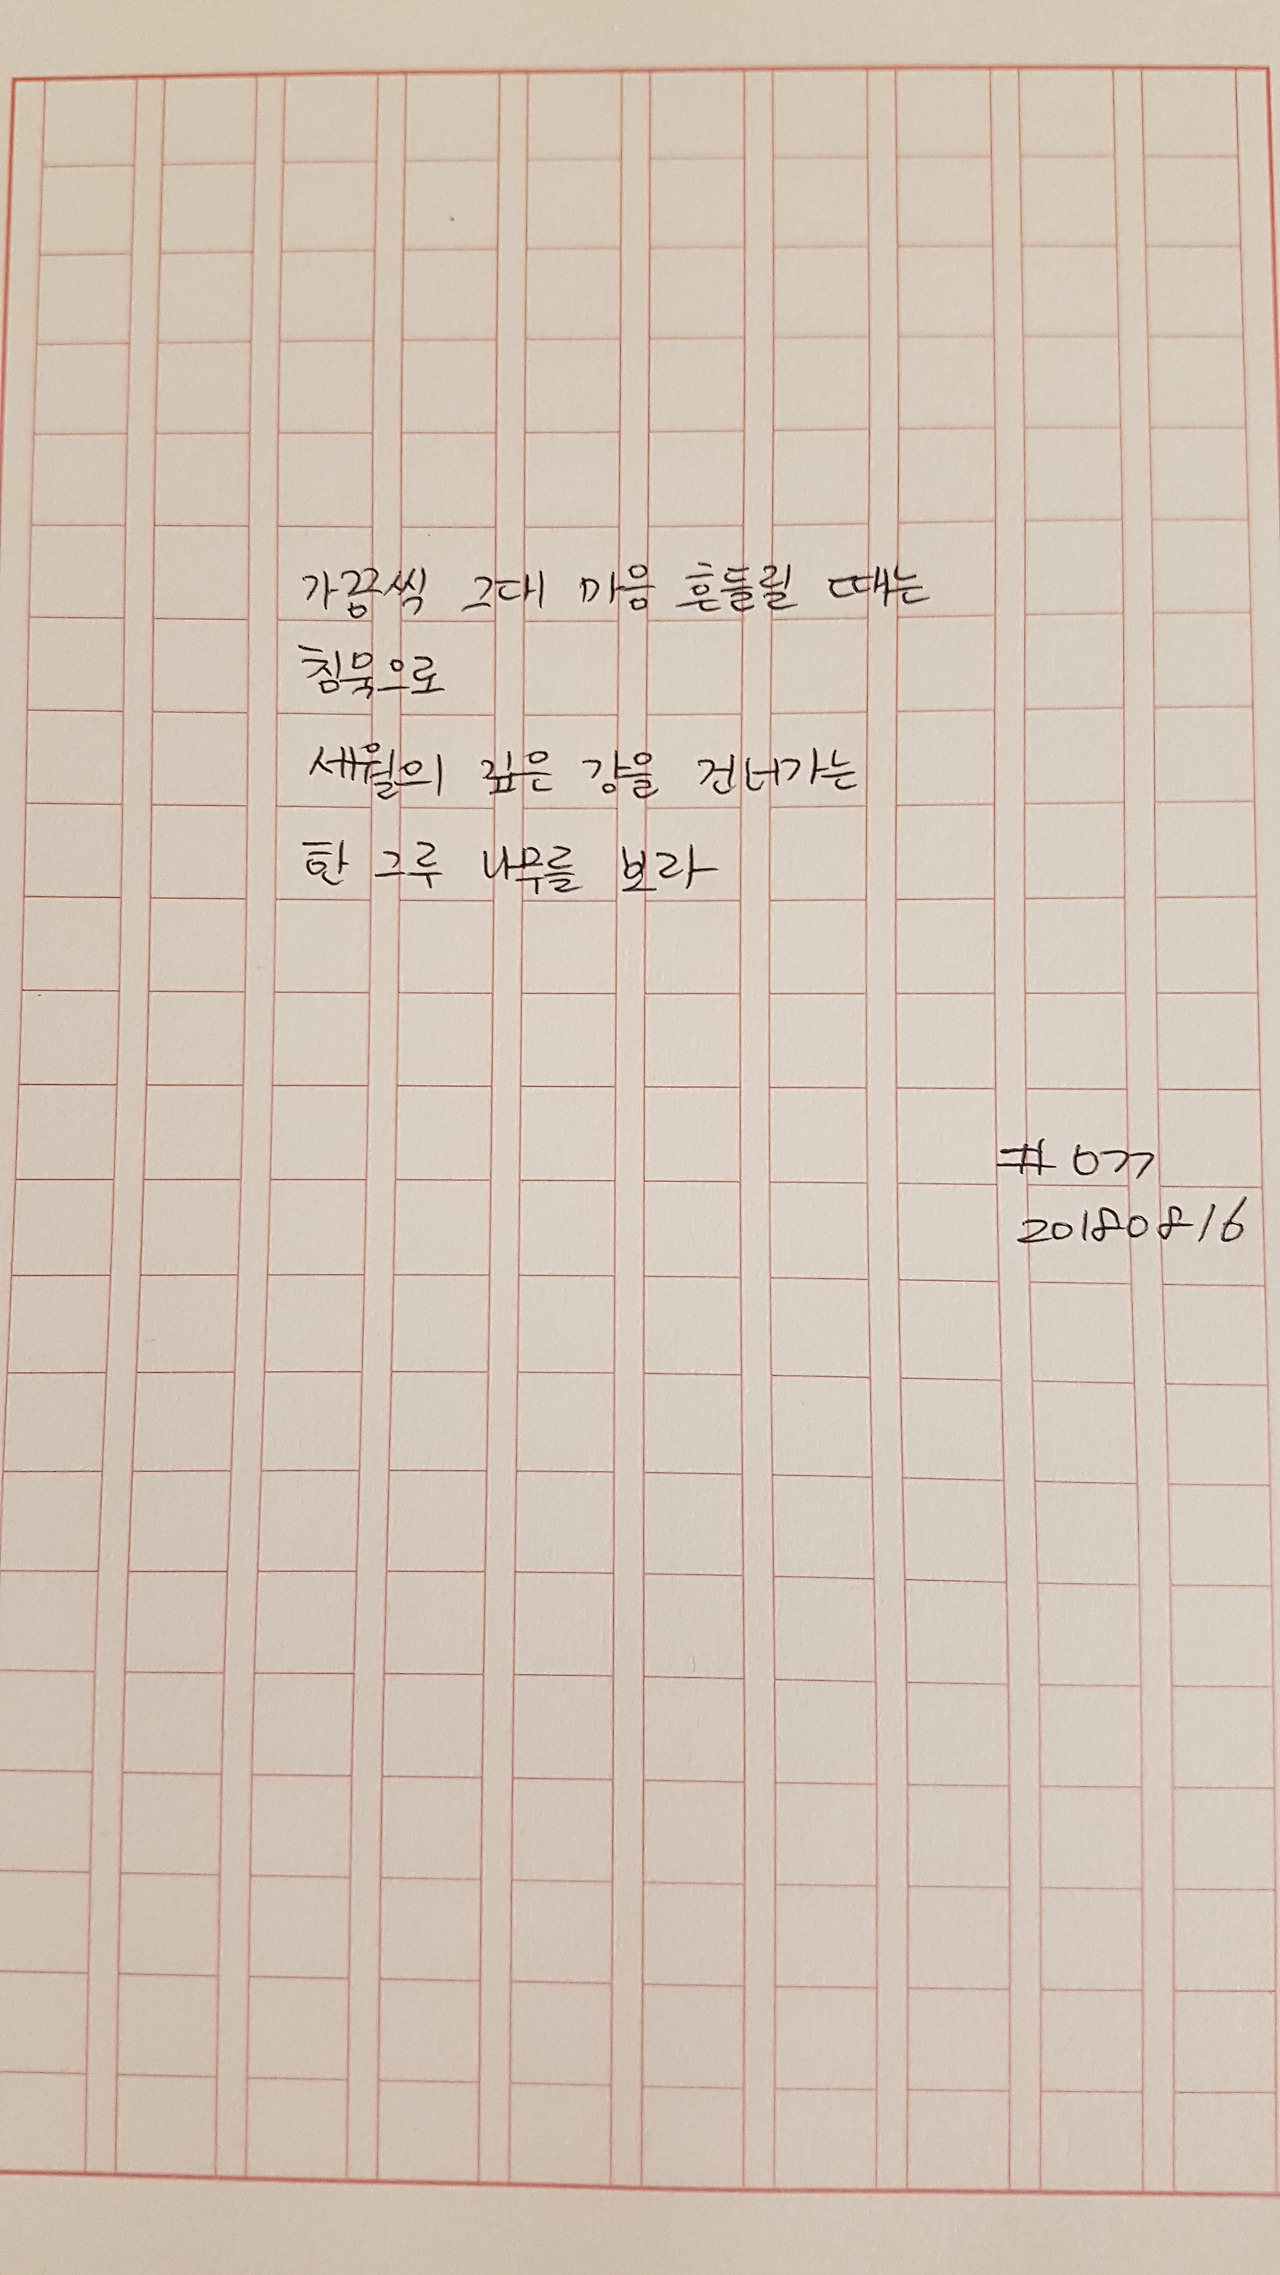 가끔씩 그대 마음 흔들릴 때는
침묵으로
세월의 깊은 강을 건너가는
한 그루 나무를 보라
# 077
20180816